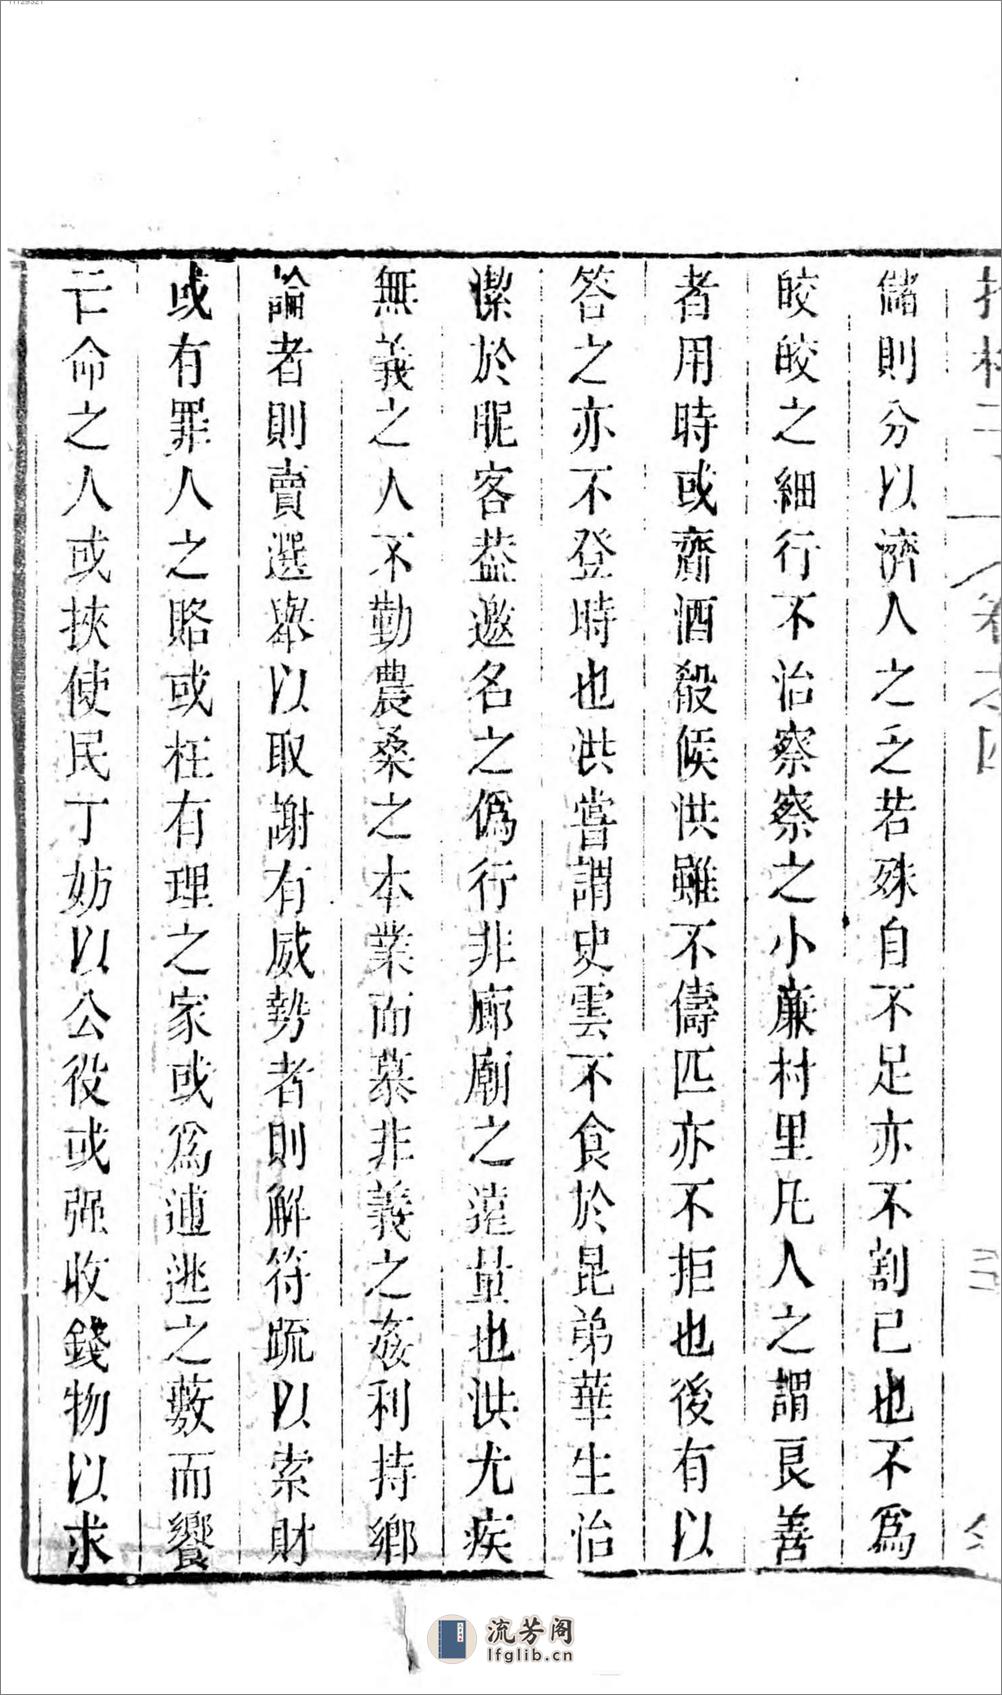 儲則分以濟人之乏若殊自不足亦不割己也不爲
皎皎之細行不治察察之小廉村里凡人之謂良善
者用時或齎酒殽候洪雖不儔匹亦不拒也後有以
答之亦不登時也洪嘗謂史雲不食於昆弟華生治
潔於昵客葢邀名之僞行非廊廟之遠量也洪尤疾
無義之人不勤農桑之本業而慕非義之姦利持鄉
論者則賣選舉以取謝有威勢者則解符疏以索財
或有罪人之賂或枉有理之家或爲逋逃之藪而饗
亡命之人或挾使民丁妨以公役或强收錢物以求
流芳阁
lfglib.cn